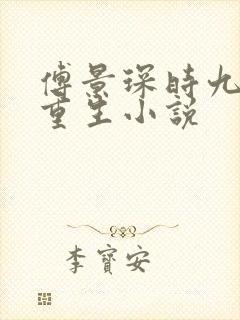 傅景琛時九
重生小説
李寶安